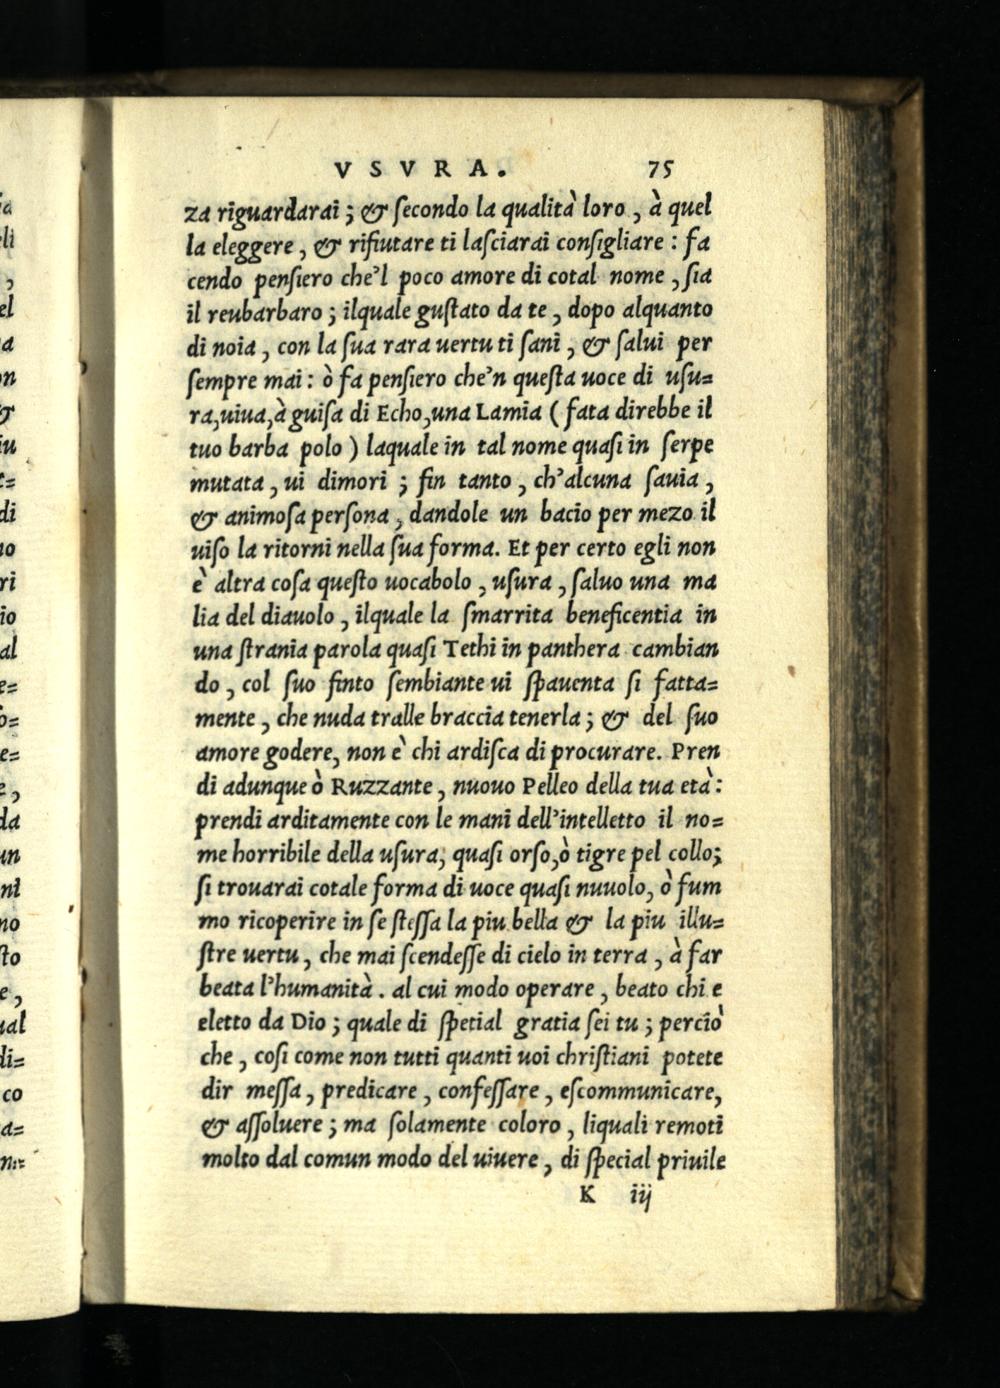 VSVRA. 75
za riguardarai ; & ſecondo la qualità loro , à quel
la eleggere , & rifiutare ti laſciarai conſigliare : fa
cendo penſiero che'l poco amore di cotal nome , ſia
il reubarbaro ; ilquale guſtato da te , dopo alquanto
di noia , con la ſua rara uertu ti ſani , & ſalui per
ſempre mai : ò fa penſiero che'n queſta uoce di uſu=
ra,uiua,à guiſa di Echo,una Lamia ( fata direbbe il
tuo barba polo ) laquale in tal nome quaſi in ſerpe
mutata , ui dimori ; fin tanto , ch'alcuna ſauia ,
& animoſa perſona , dandole un bacio per mezo il
uiſo la ritorni nella ſua forma. Et per certo egli non
è altra coſa queſto uocabolo , uſura , ſaluo una ma
lia del diauolo , ilquale la ſmarrita beneficentia in
una ſtrania parola quaſi Tethi in panthera cambian
do , col ſuo finto ſembiante ui ſpauenta ſi fatta=
mente , che nuda tralle braccia tenerla ; & del ſuo
amore godere, non è chi ardiſca di procurare. Pren
di adunque ò Ruzzante , nuouo Pelleo della tua età :
prendi arditamente con le mani dell'intelletto il no=
me horribile della uſura, quaſi orſo,ò tigre pel collo;
ſi trouarai cotale forma di uoce quaſi nuuolo, ò fum
mo ricoperire in ſe ſteſſa la piu bella & la piu illu=
ſtre uertu , che mai ſcendeſſe di cielo in terra , à far
beata l'humanità . al cui modo operare , beato chi e
eletto da Dio ; quale di ſpetial gratia ſei tu ; perciò
che , coſi come non tutti quanti uoi chriſtiani potete
dir meſſa , predicare , confeſſare , eſcommunicare,
& aſſoluere ; ma ſolamente coloro , liquali remoti
molto dal comun modo del uiuere , di ſpecial priuile
K iij